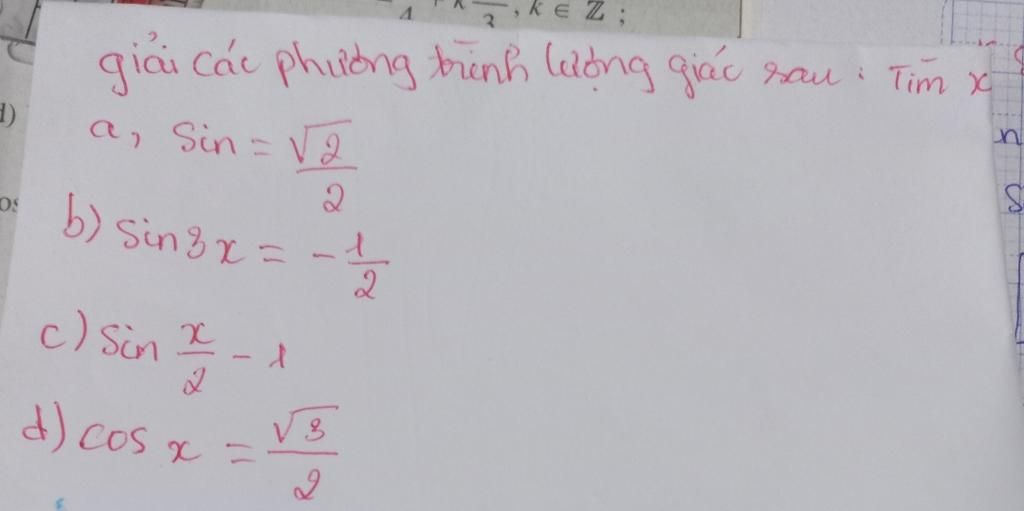 4 + k 3 , k ∈ ℤ ;
giải các phương trình lượng giác sau : Tìm x
d)
a, Sin = √2/2
n
os
S
b) Sin3x = - 1/2
c) Sin x/2 - 1
d) cos x = √3/2